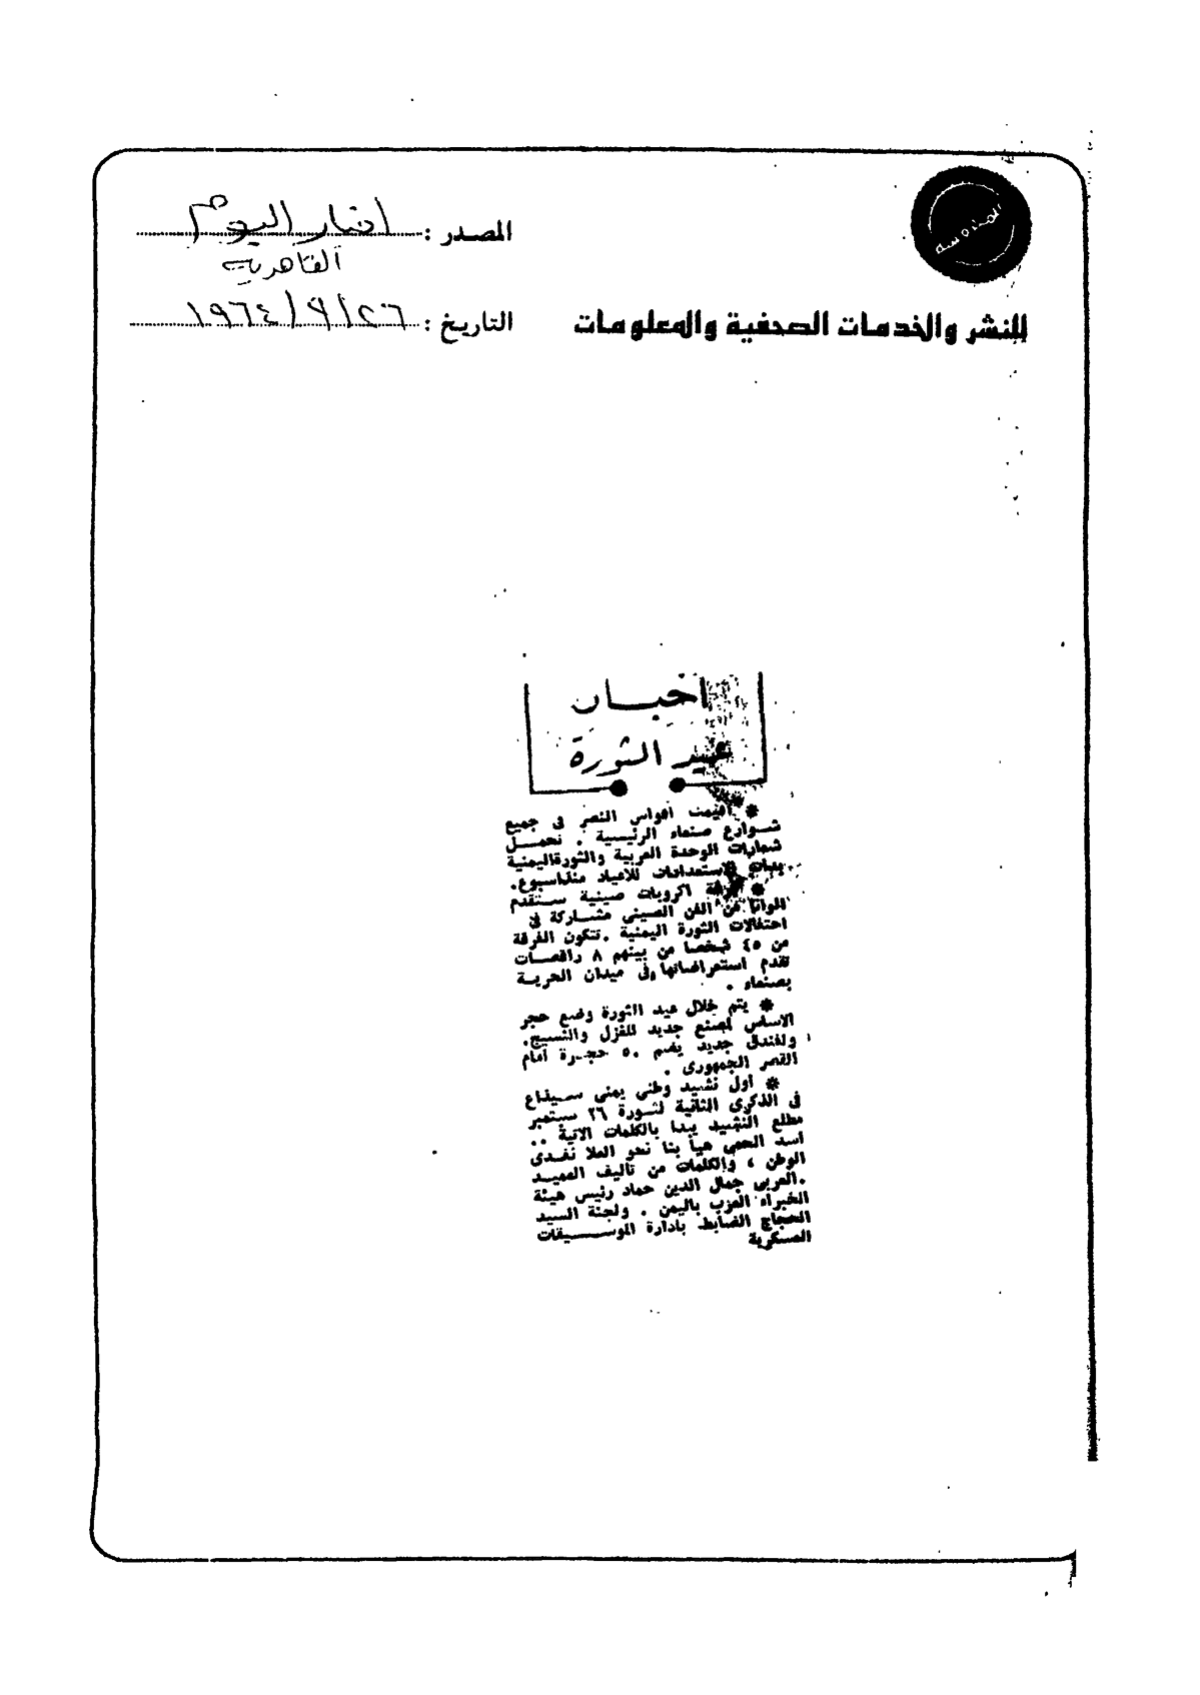 المصدر : اخبار اليوم
القاهرية
للنشر والخدمات الصحفية والمعلومات
التاريخ : ٢٦/٩/١٩٦٤
اخبار
عيد الثورة
* اقيمت اقواس النصر فى جميع
شوارع صنعاء الرئيسية . تحمل
شعارات الوحدة العربية والثورة اليمنية
بدات الاستعدادات للاعياد منذ اسبوع.
* فرقة اكروبات صينية ستقدم
الوانا من الفن الصينى مشاركة فى
احتفالات الثورة اليمنية . تتكون الفرقة
من ٤٥ شخصا من بينهم ٨ راقصات
تقدم استعراضاتها فى ميدان الحرية
بصنعاء .
* يتم خلال عيد الثورة وضع حجر
الاساس لمصنع جديد للغزل والنسيج.
ولفندق جديد يضم ٥٠ حجرة امام
القصر الجمهورى .
* اول نشيد وطنى يمنى سيذاع
فى الذكرى الثانية لثورة ٢٦ سبتمبر
مطلع النشيد يبدا بالكلمات الاتية ..
اسد الحمى هيا بنا نحو العلا نفدى
الوطن ، والكلمات من تاليف العميد
العربى جمال الدين حماد رئيس هيئة
الخبراء العرب باليمن . ولجنة السيد
الحجاج الضابط بادارة الموسيقات
العسكرية